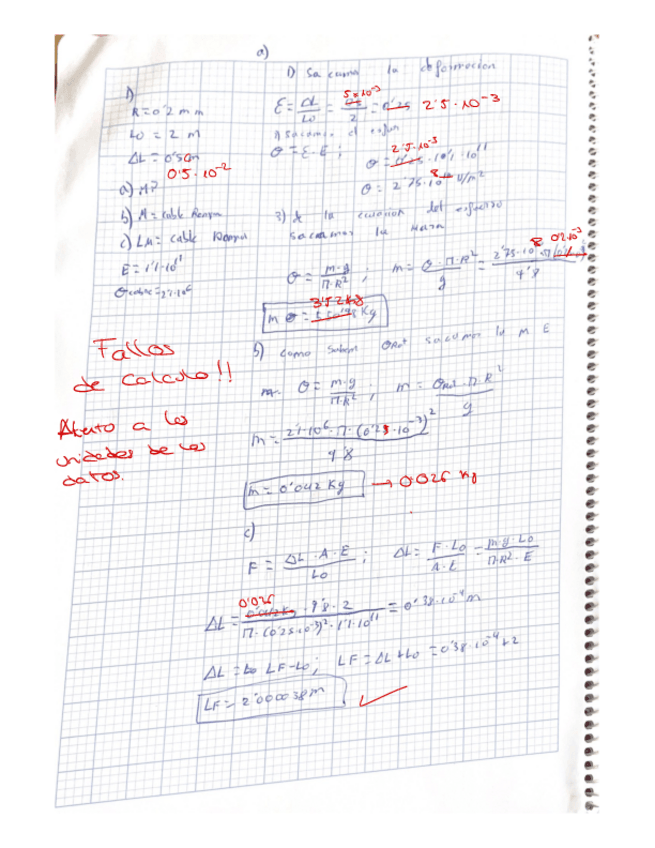 a)
1) Sacamos la deformacion
1)
R = 0'2 mm
L0 = 2 m
ΔL = 0'5cm
0'5·10⁻²
a) M?
b) M = cable Rompa
c) LM = cable Rompa
E = 1'1·10¹¹
σcable = 2'1·10⁶
ε = ΔL/L0 = 5*10⁻³/2 = 2'5·10⁻³
σ = ε·E ; σ = 2'5·10⁻³ · 1'1·10¹¹
σ = 2'75·10⁸ N/m²
3) de la ecuación del esfuerzo
sacamos la masa
σ = m·g/Π·R² ; m = σ·Π·R²/g = 2'75·10⁸·Π(0'2·10⁻³)²/9'8
m = 3'52 kg
Fallos
de Calculo!!
Atento a las
unidades de los
datos.
b) como Sabem σRot sacamos la m
σ = m·g/Π·R² ; m = σRot·Π·R²/g
m = 2'1·10⁶·Π·(0'2·10⁻³)²/9'8
m = 0'042 Kg → 0'026 kg
c)
F = ΔL·A·E/L0 ; ΔL = F·L0/A·E = m·g·L0/Π·R²·E
0'026
ΔL = 0'042 Kg·9'8·2/Π·(0'25·10⁻³)²·1'1·10¹¹ = 0'38·10⁻⁴ m
ΔL = LF-L0 ; LF = ΔL+L0 = 0'38·10⁻⁴+2
LF = 2'000038 m